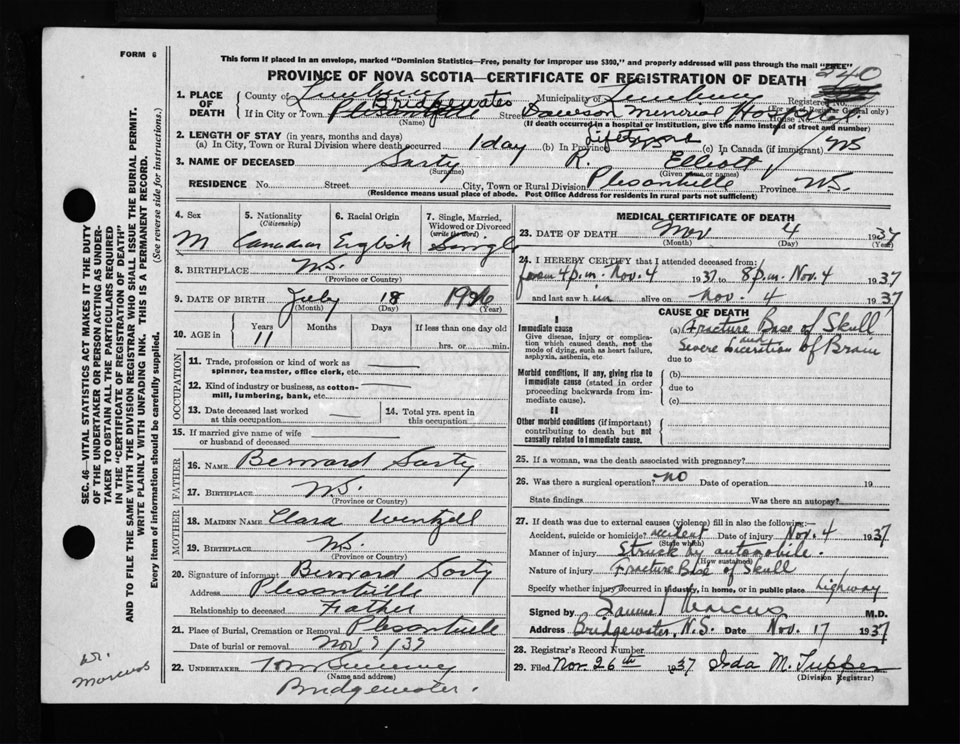 FORM 6
This form if placed in an envelope, marked "Dominion Statistics—Free, penalty for improper use $300," and properly addressed will pass through the mail "FREE"
PROVINCE OF NOVA SCOTIA—CERTIFICATE OF REGISTRATION OF DEATH
240
1. PLACE OF DEATH
County of Lunenburg Municipality of Lunenburg Registered No.
(For use of Registrar General only)
If in City or Town Bridgewater Street Dawson Memorial Hospital House No.
(Name) (If death occurred in a hospital or institution, give the name instead of street and number)
2. LENGTH OF STAY (in years, months and days)
(a) In City, Town or Rural Division where death occurred 1 day (b) In Province (c) In Canada (if immigrant) NS
3. NAME OF DECEASED Sarty R. Elliott
(Surname) (Given name or names)
RESIDENCE No. Street City, Town or Rural Division Plesantville Province N.S.
(Residence means usual place of abode. Post Office Address for residents in rural parts not sufficient)
4. Sex M
5. Nationality (Citizenship) Canadian
6. Racial Origin English
7. Single, Married, Widowed or Divorced (write the word) Single
8. BIRTHPLACE N.S.
(Province or Country)
9. DATE OF BIRTH July 18 1926
(Month) (Day) (Year)
10. AGE in Years Months Days If less than one day old
11 hrs. or min.
OCCUPATION
11. Trade, profession or kind of work as spinner, teamster, office clerk, etc.
12. Kind of industry or business, as cotton-mill, lumbering, bank, etc.
13. Date deceased last worked at this occupation
14. Total yrs. spent in this occupation
15. If married give name of wife or husband of deceased
FATHER
16. NAME Bernard Sarty
17. BIRTHPLACE N.S.
(Province or Country)
MOTHER
18. MAIDEN NAME Clara Wentzell
19. BIRTHPLACE N.S.
(Province or Country)
20. Signature of informant Bernard Sarty
Address Plesantville
Relationship to deceased Father
21. Place of Burial, Cremation or Removal Plesantvill
Date of burial or removal Nov 7/37
22. UNDERTAKER Tom Sweeney
(Name and address)
Bridgewater.
MEDICAL CERTIFICATE OF DEATH
23. DATE OF DEATH Nov 4 1937
(Month) (Day) (Year)
24. I HEREBY CERTIFY that I attended deceased from:
from 4 p.m. Nov. 4 1937 to 8 p.m. Nov. 4 1937
and last saw him alive on Nov. 4 1937
CAUSE OF DEATH
I
Immediate cause
Give disease, injury or complication which caused death, not the mode of dying, such as heart failure, asphyxia, asthenia, etc
(a) Fracture Base of Skull
and
Severe Laceration of Brain
due to
Morbid conditions, if any, giving rise to immediate cause (stated in order proceeding backwards from immediate cause).
(b)
due to
(c)
II
Other morbid conditions (if important) contributing to death but not causally related to immediate cause.
25. If a woman, was the death associated with pregnancy?
26. Was there a surgical operation? no Date of operation 19
State findings Was there an autopsy?
27. If death was due to external causes (violence) fill in also the following:
Accident, suicide or homicide? accident Date of injury Nov. 4 1937
(State which)
Manner of injury Struck by automobile.
(How sustained)
Nature of injury Fracture Base of Skull
Specify whether injury occurred in industry, in home, or in public place highway
Signed by Samuel Marcus M.D.
Address Bridgewater, N.S. Date Nov. 17 1937
28. Registrar's Record Number
29. Filed Nov. 26th 1937 Ida M. Tupper
(Division Registrar)
SEC. 46—VITAL STATISTICS ACT MAKES IT THE DUTY
OF THE UNDERTAKER OR PERSON ACTING AS UNDER-
TAKER TO OBTAIN ALL THE PARTICULARS REQUIRED
IN THE "CERTIFICATE OF REGISTRATION OF DEATH"
AND TO FILE THE SAME WITH THE DIVISION REGISTRAR WHO SHALL ISSUE THE BURIAL PERMIT.
WRITE PLAINLY WITH UNFADING INK. THIS IS A PERMANENT RECORD.
Every item of information should be carefully supplied.
(See reverse side for instructions.)
Dr. Marcus